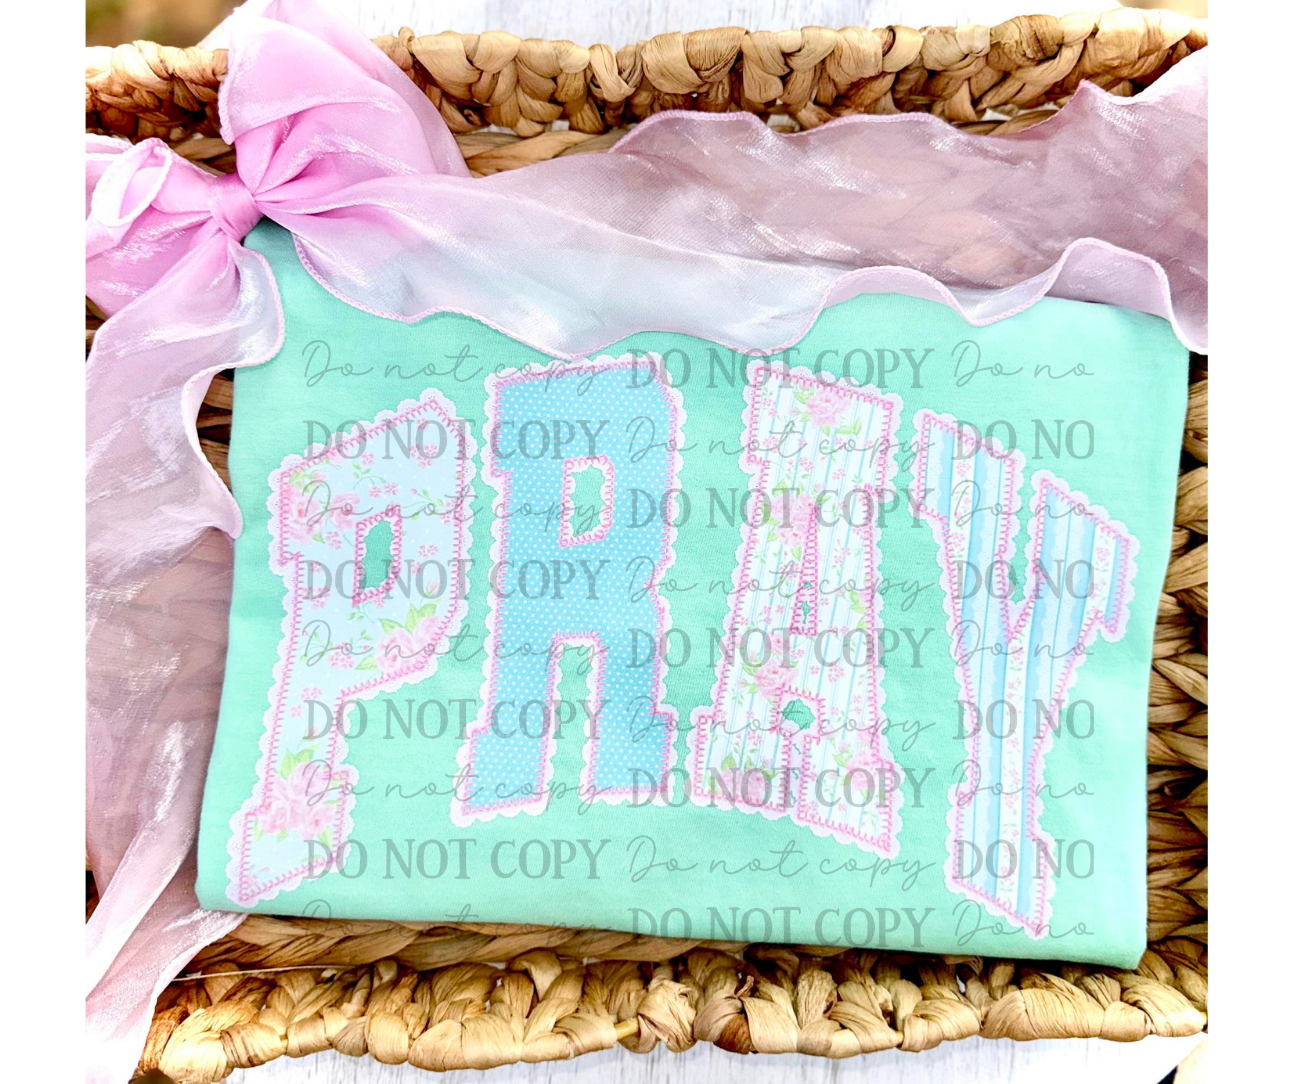 Do not copy DO NOT COPY Do no
DO NOT COPY Do not copy DO NO
Do not copy DO NOT COPY Do no
DO NOT COPY Do not copy DO NO
Do not copy DO NOT COPY Do no
DO NOT COPY Do not copy DO NO
Do not copy DO NOT COPY Do no
DO NOT COPY Do not copy DO NO
Do not copy DO NOT COPY Do no
PRAY